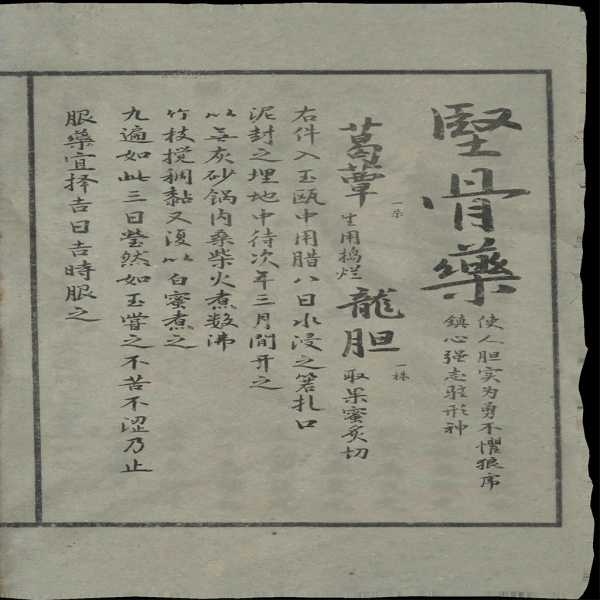 堅骨藥
使人胆实为勇不懼狼席
鎮心强志駐形神
葛蕈
一朵
生用捣烂
龍胆
一株
取果蜜炙切
右件入玉瓯中用腊八日水浸之箬扎口
泥封之埋地中待次年三月間开之
以无灰砂锅内桑柴火煮数沸
竹枝搅稠黏又復以白蜜煮之
九遍如此三日莹然如玉嘗之不苦不涩乃止
服藥宜择吉日吉時服之